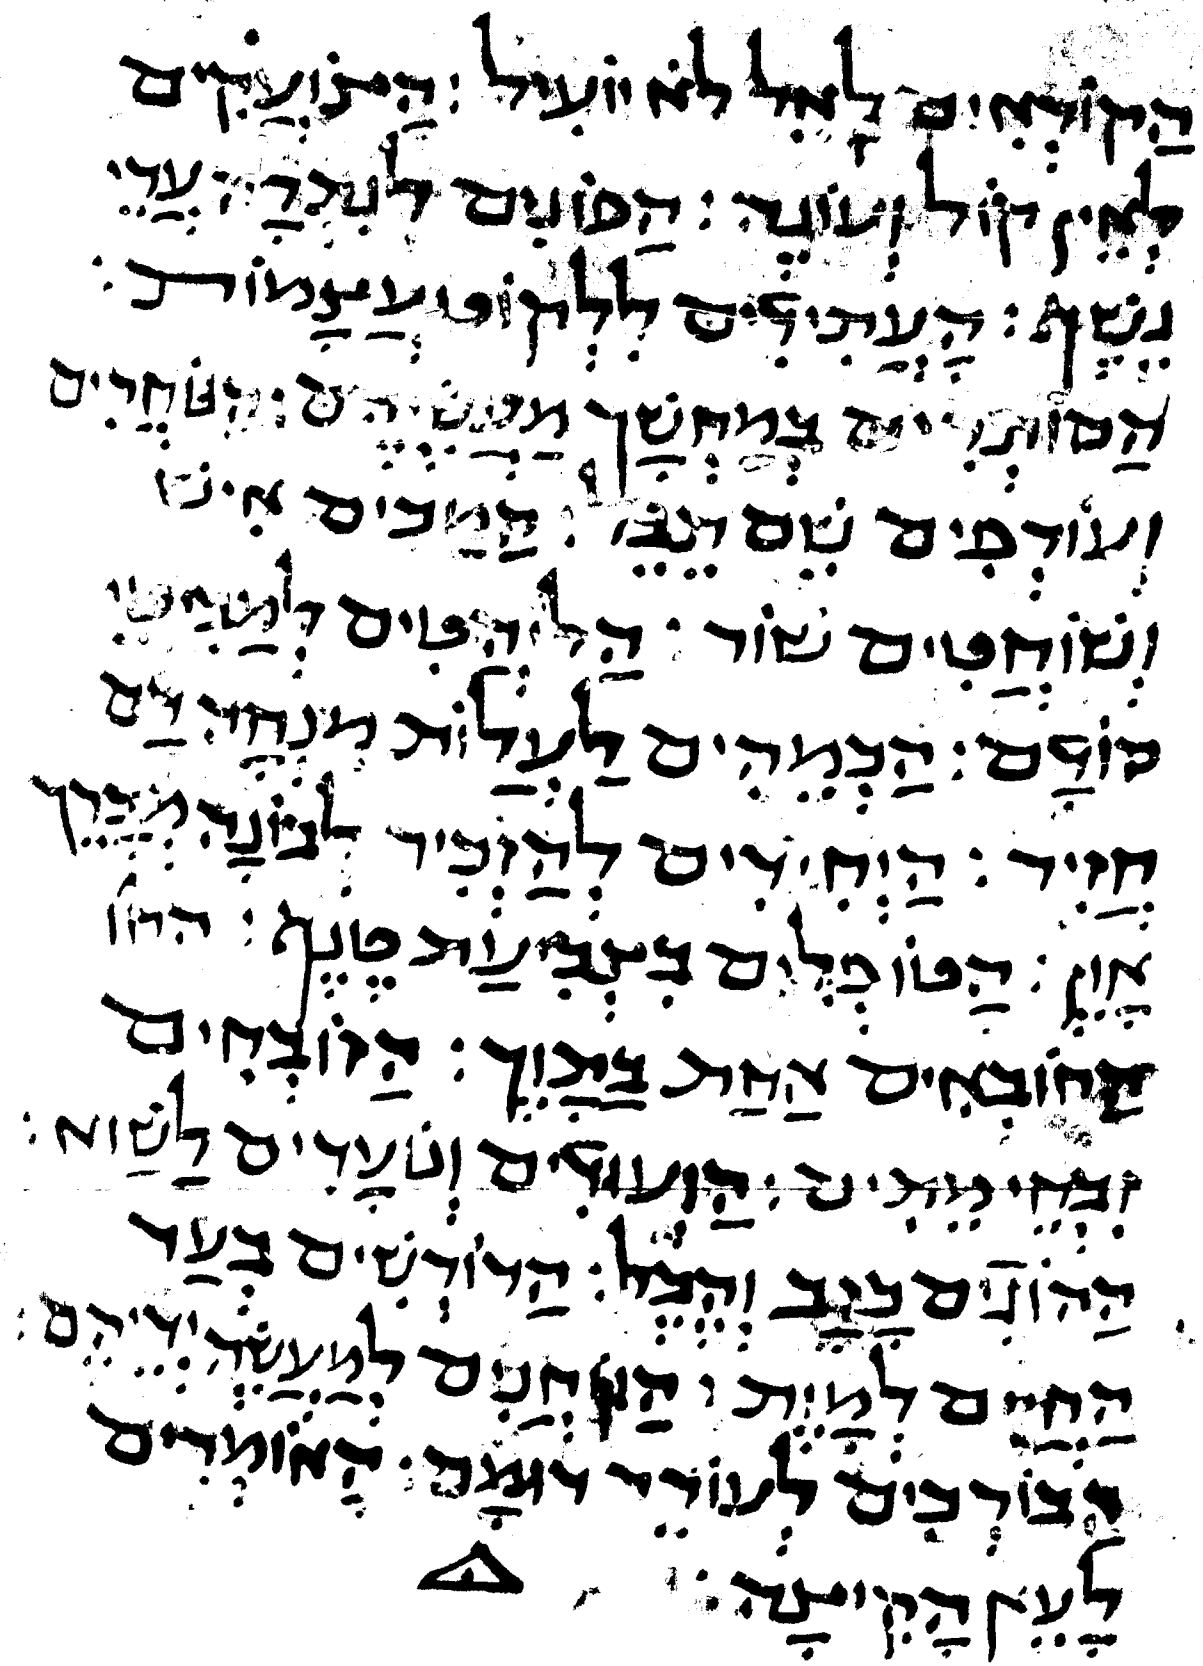 הַקּוֹרְאִים לָאֵל לֹא יוֹעִיל : הַצּוֹעֲקִים
לְאֵין קוֹל וְעוֹנֶה : הַפּוֹנִים לְנִבְרָה עֲדֵי
נֶשֶׁף : הָעֲתִידִים לִלְקוֹט עֲצָמוֹת :
הַסּוֹתְרִים בְּמַחְשָׁךְ מַעֲשֵׂיהֶם : הַטּוֹחֲרִים
וְעוֹרְפִים שָׁם כֶּלֶב : הַמַּכִּים אִישׁ
וְשׁוֹחֲטִים שׁוֹר : הַלְּהֵטִים לְמַחֲטֵי
כּוֹזָם : הַכְּמֵהִים לַעֲלוֹת מִנְחָה דַּם
חֲזִיר : הַיְּחִידִים לְהַזְכִּיר לְבוֹנָה מְבָרֵךְ
אָוֶן : הַטּוֹפְלִים בִּצְבִיעַת טֶנֶף : החו
הַחוֹבְאִים אַחַת בַּתָּוֶךְ : הַזּוֹבְחִים
זִבְחֵי מֵתִים : הַוְעוּדִים וְנוֹעָדִים לַשָּׁוא :
הַהוֹגִים בַּגַּב וְהֶבֶל : הַדּוֹרְשִׁים בְּעַד
הַחַיִּים לְמַיִת : הַשֹּׁחֲחִים לְמַעֲשֵׂה יְדֵיהֶם :
הַבּוֹרְכִים לְעוֹרֵי דוּמָם : הָאוֹמְרִים
לָעֵץ הָקִיצָה :